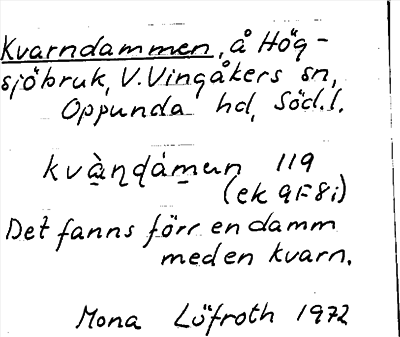 Kvarndammen, å Hög-
sjöbruk, V. Vingåkers sn,
Oppunda hd, Södl.
kvàṇḍámun 119
(ek 9F8i)
Det fanns förr en damm
med en kvarn.
Mona Löfroth 1972